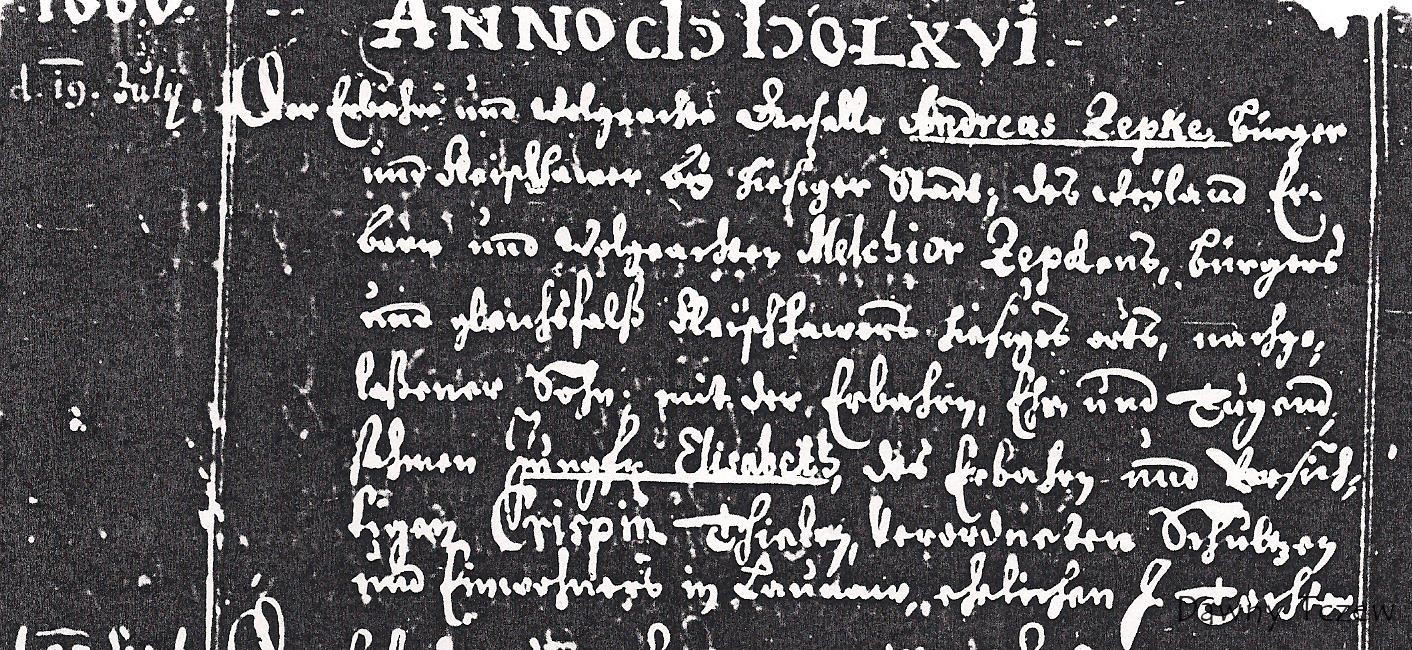 1666.
ANNO CIↃ IↃCLXVI.
d. 19. Julij. Der Erbahre und wolgeachte Geselle Andreas Zepke, Bürger
und Fleischhawer hiesiger Stadt, des weyland Er-
barn und wolgeachten Melchior Zepkens, Bürgers
und gleichsfals Fleischhawers hiesiges orts, nachge,
laßener Sohn, mit der Erbahrn, Ehr und Tugend,
sahmen Jungfr. Elisabeth, des Erbahrn und Vorsich,
tigen Crispin Thielen, Verordneten Schultzen
und Einwohners in ehelichen J. Tochter
Dawny Tczew